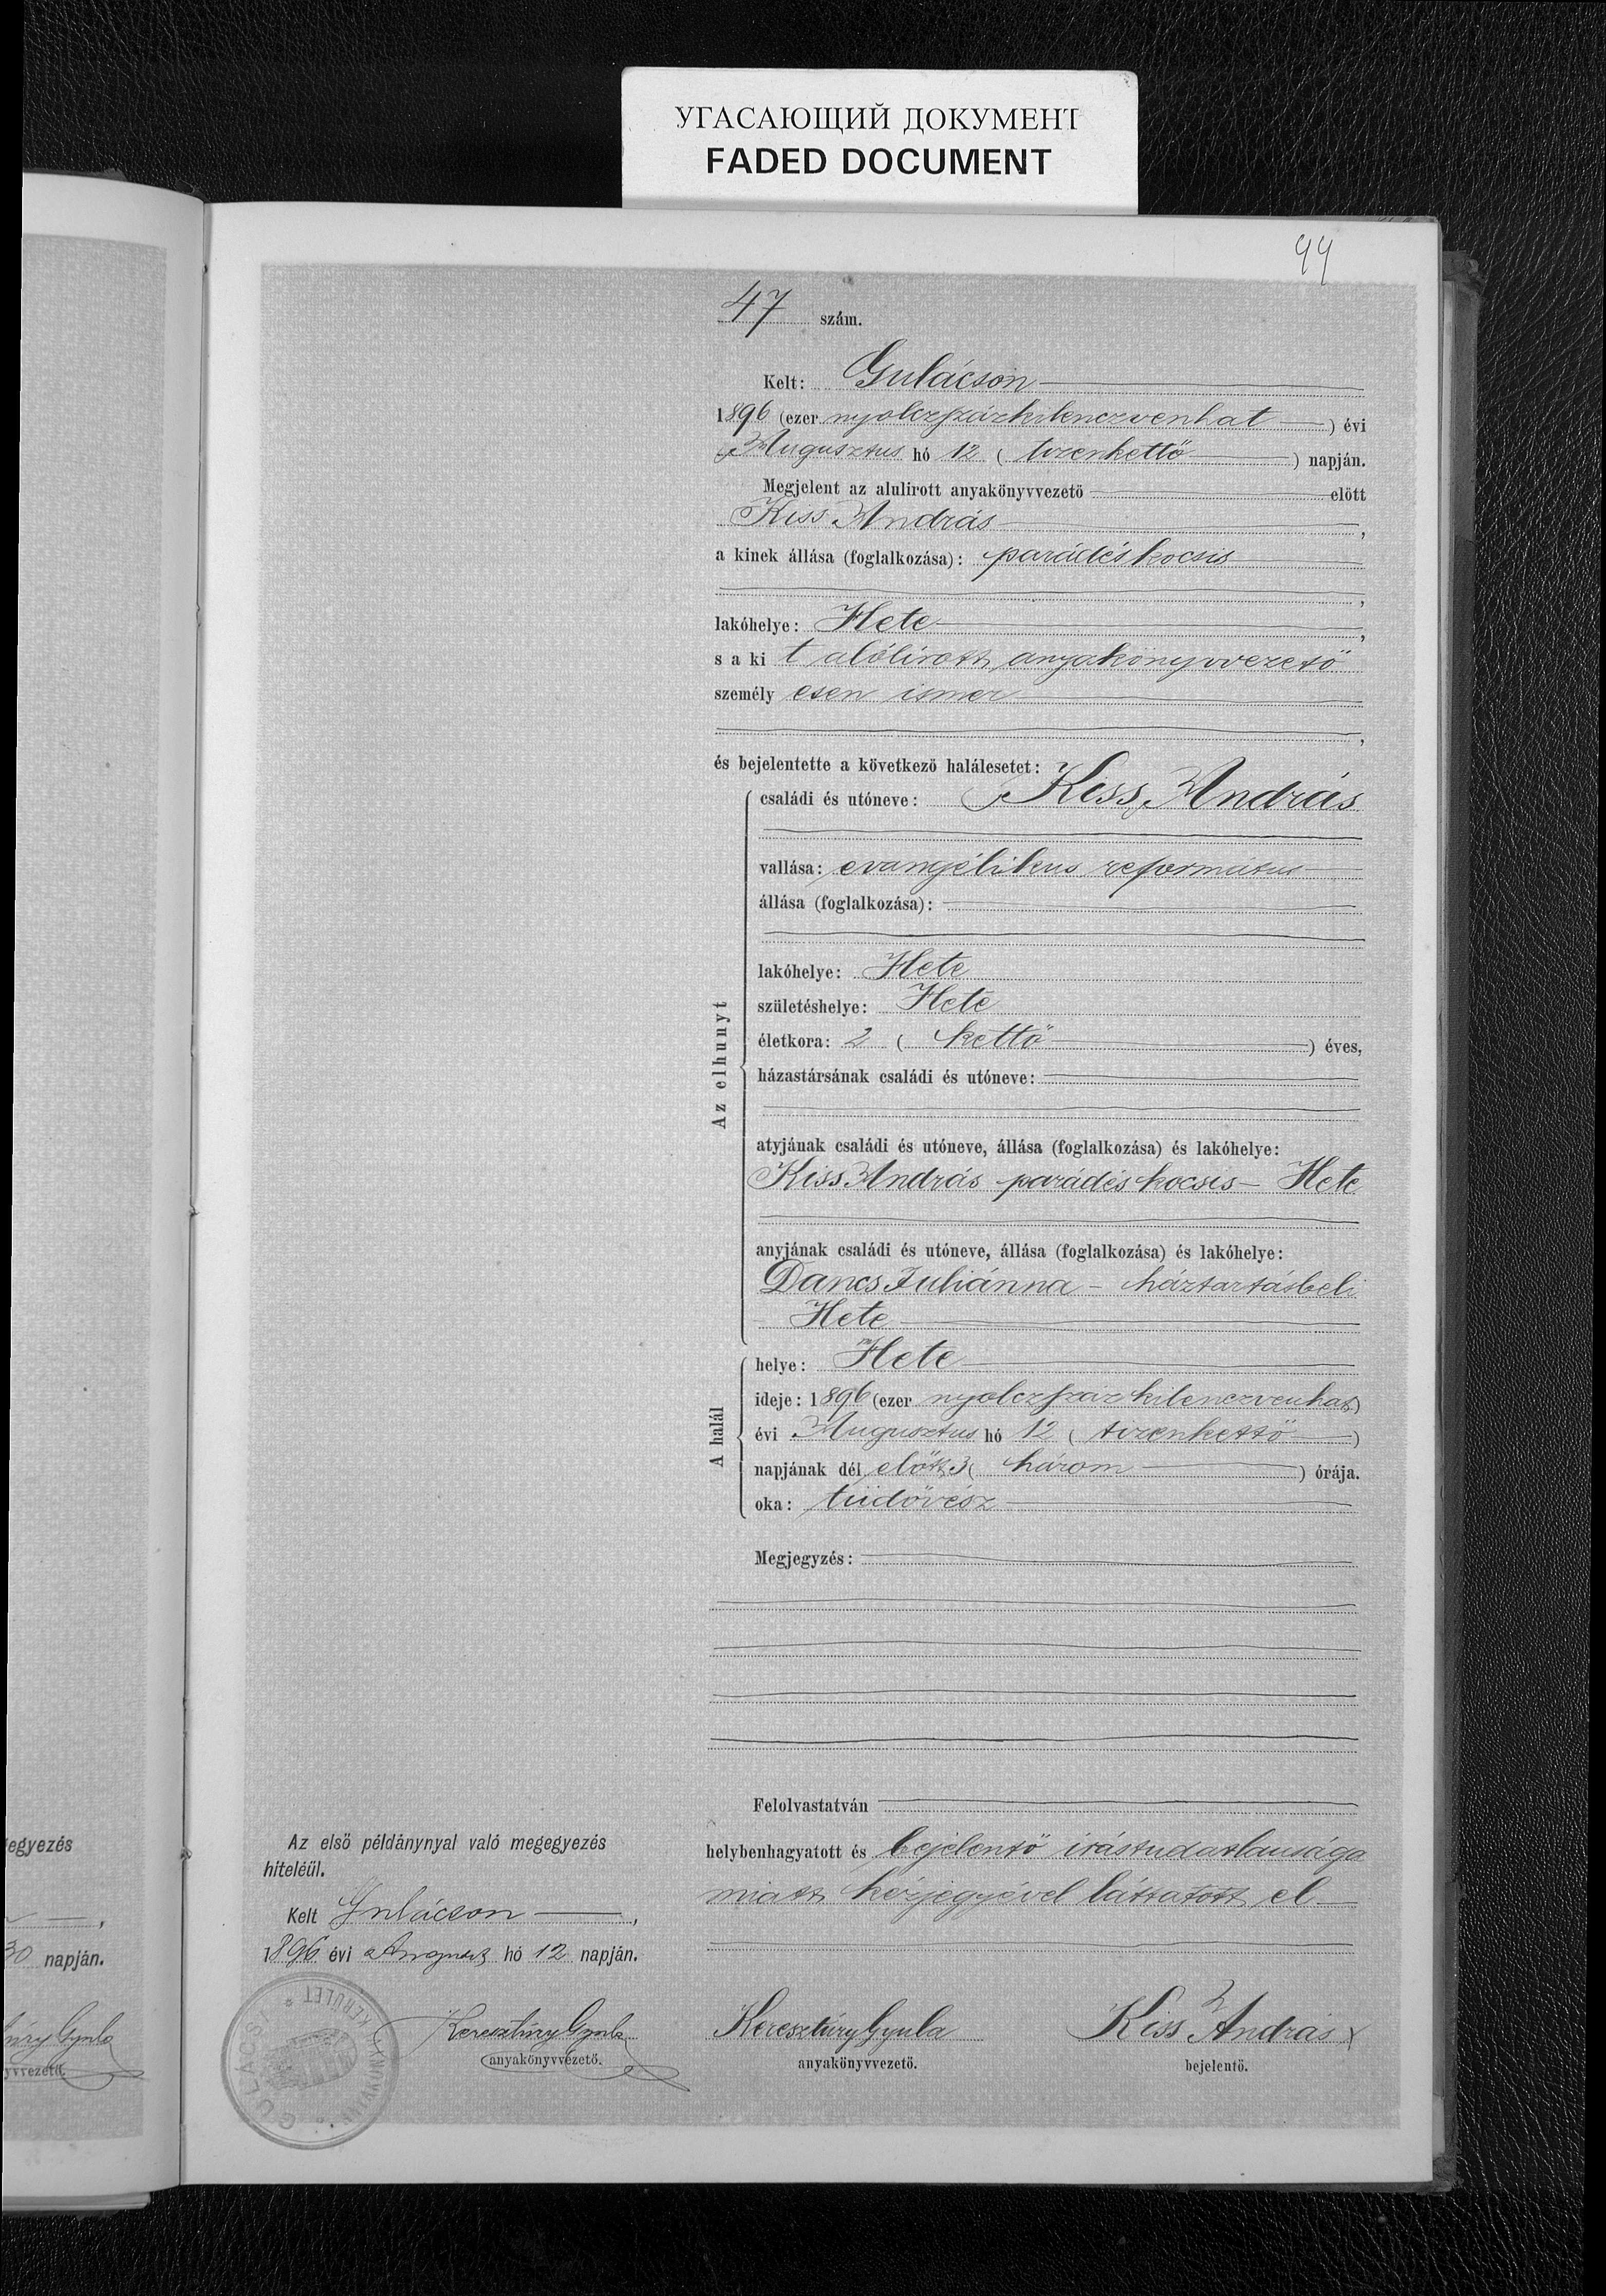 УГАСАЮЩИЙ ДОКУМЕНТ
FADED DOCUMENT
44
47 szám.
Kelt: Gulácson
1896 (ezer nyolczszázkilenczvenhat) évi
Augusztus hó 12 (tizenkettő) napján.
Megjelent az alulirott anyakönyvvezető előtt
Kiss András,
a kinek állása (foglalkozása): parádés kocsis
,
lakóhelye: Hete,
s a kit alólirott anyakönyvvezető
személyesen ismer
,
és bejelentette a következő halálesetet:
Az elhunyt
családi és utóneve: Kiss András
vallása: evangélikus református
állása (foglalkozása):
lakóhelye: Hete
születéshelye: Hete
életkora: 2 (kettő) éves,
házastársának családi és utóneve:
atyjának családi és utóneve, állása (foglalkozása) és lakóhelye:
Kiss András parádés kocsis – Hete
anyjának családi és utóneve, állása (foglalkozása) és lakóhelye:
Dancs Juliánna – háztartásbeli
Hete
A halál
helye: Hete
ideje: 1896 (ezer nyolczszáz kilenczvenhat)
évi Augusztus hó 12 (tizenkettő)
napjának dél előtt 3 (három) órája.
oka: tüdővész
Megjegyzés:
Felolvastatván
helybenhagyatott és bejelentő irástudatlansága
miatt kézjegyével láttatott el
Az első példánynyal való megegyezés
hiteléül.
Kelt Gulácson,
1896 évi August hó 12 napján.
Keresztúry Gyula
anyakönyvvezető.
Keresztúry Gyula
anyakönyvvezető.
Kiss András x
bejelentő.
GULÁCSI ANYAKÖNYVI KERÜLET
egyezés
,
30 napján.
túry Gyula
yvvezető.